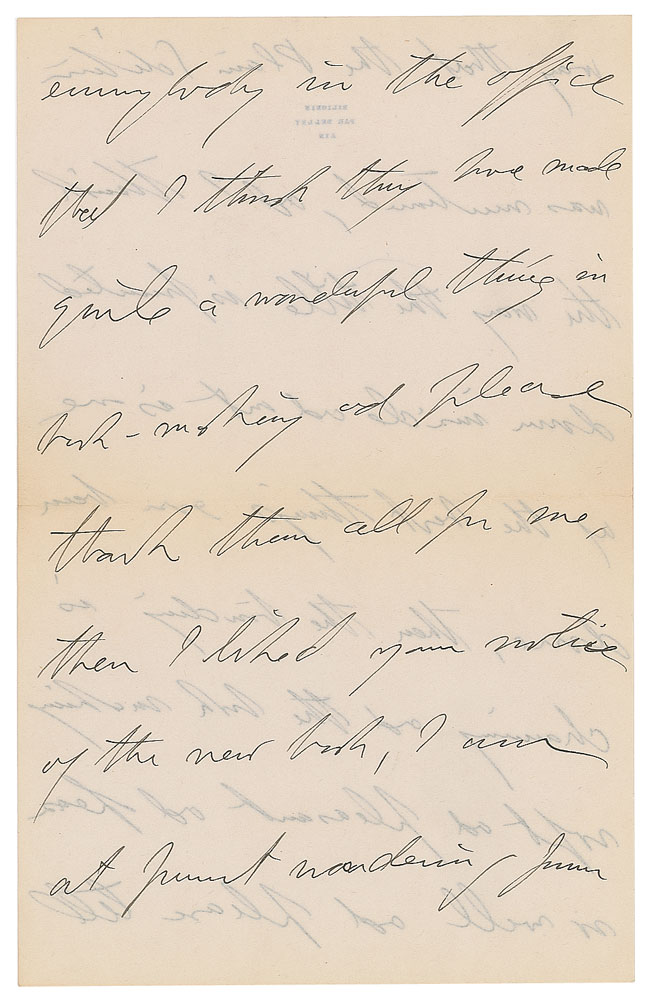 everybody in the office
that I think they have made
quite a wonderful thing in
book-making and please
thank them all for me,
then I liked your notice
of the new book, I am
at present wondering from